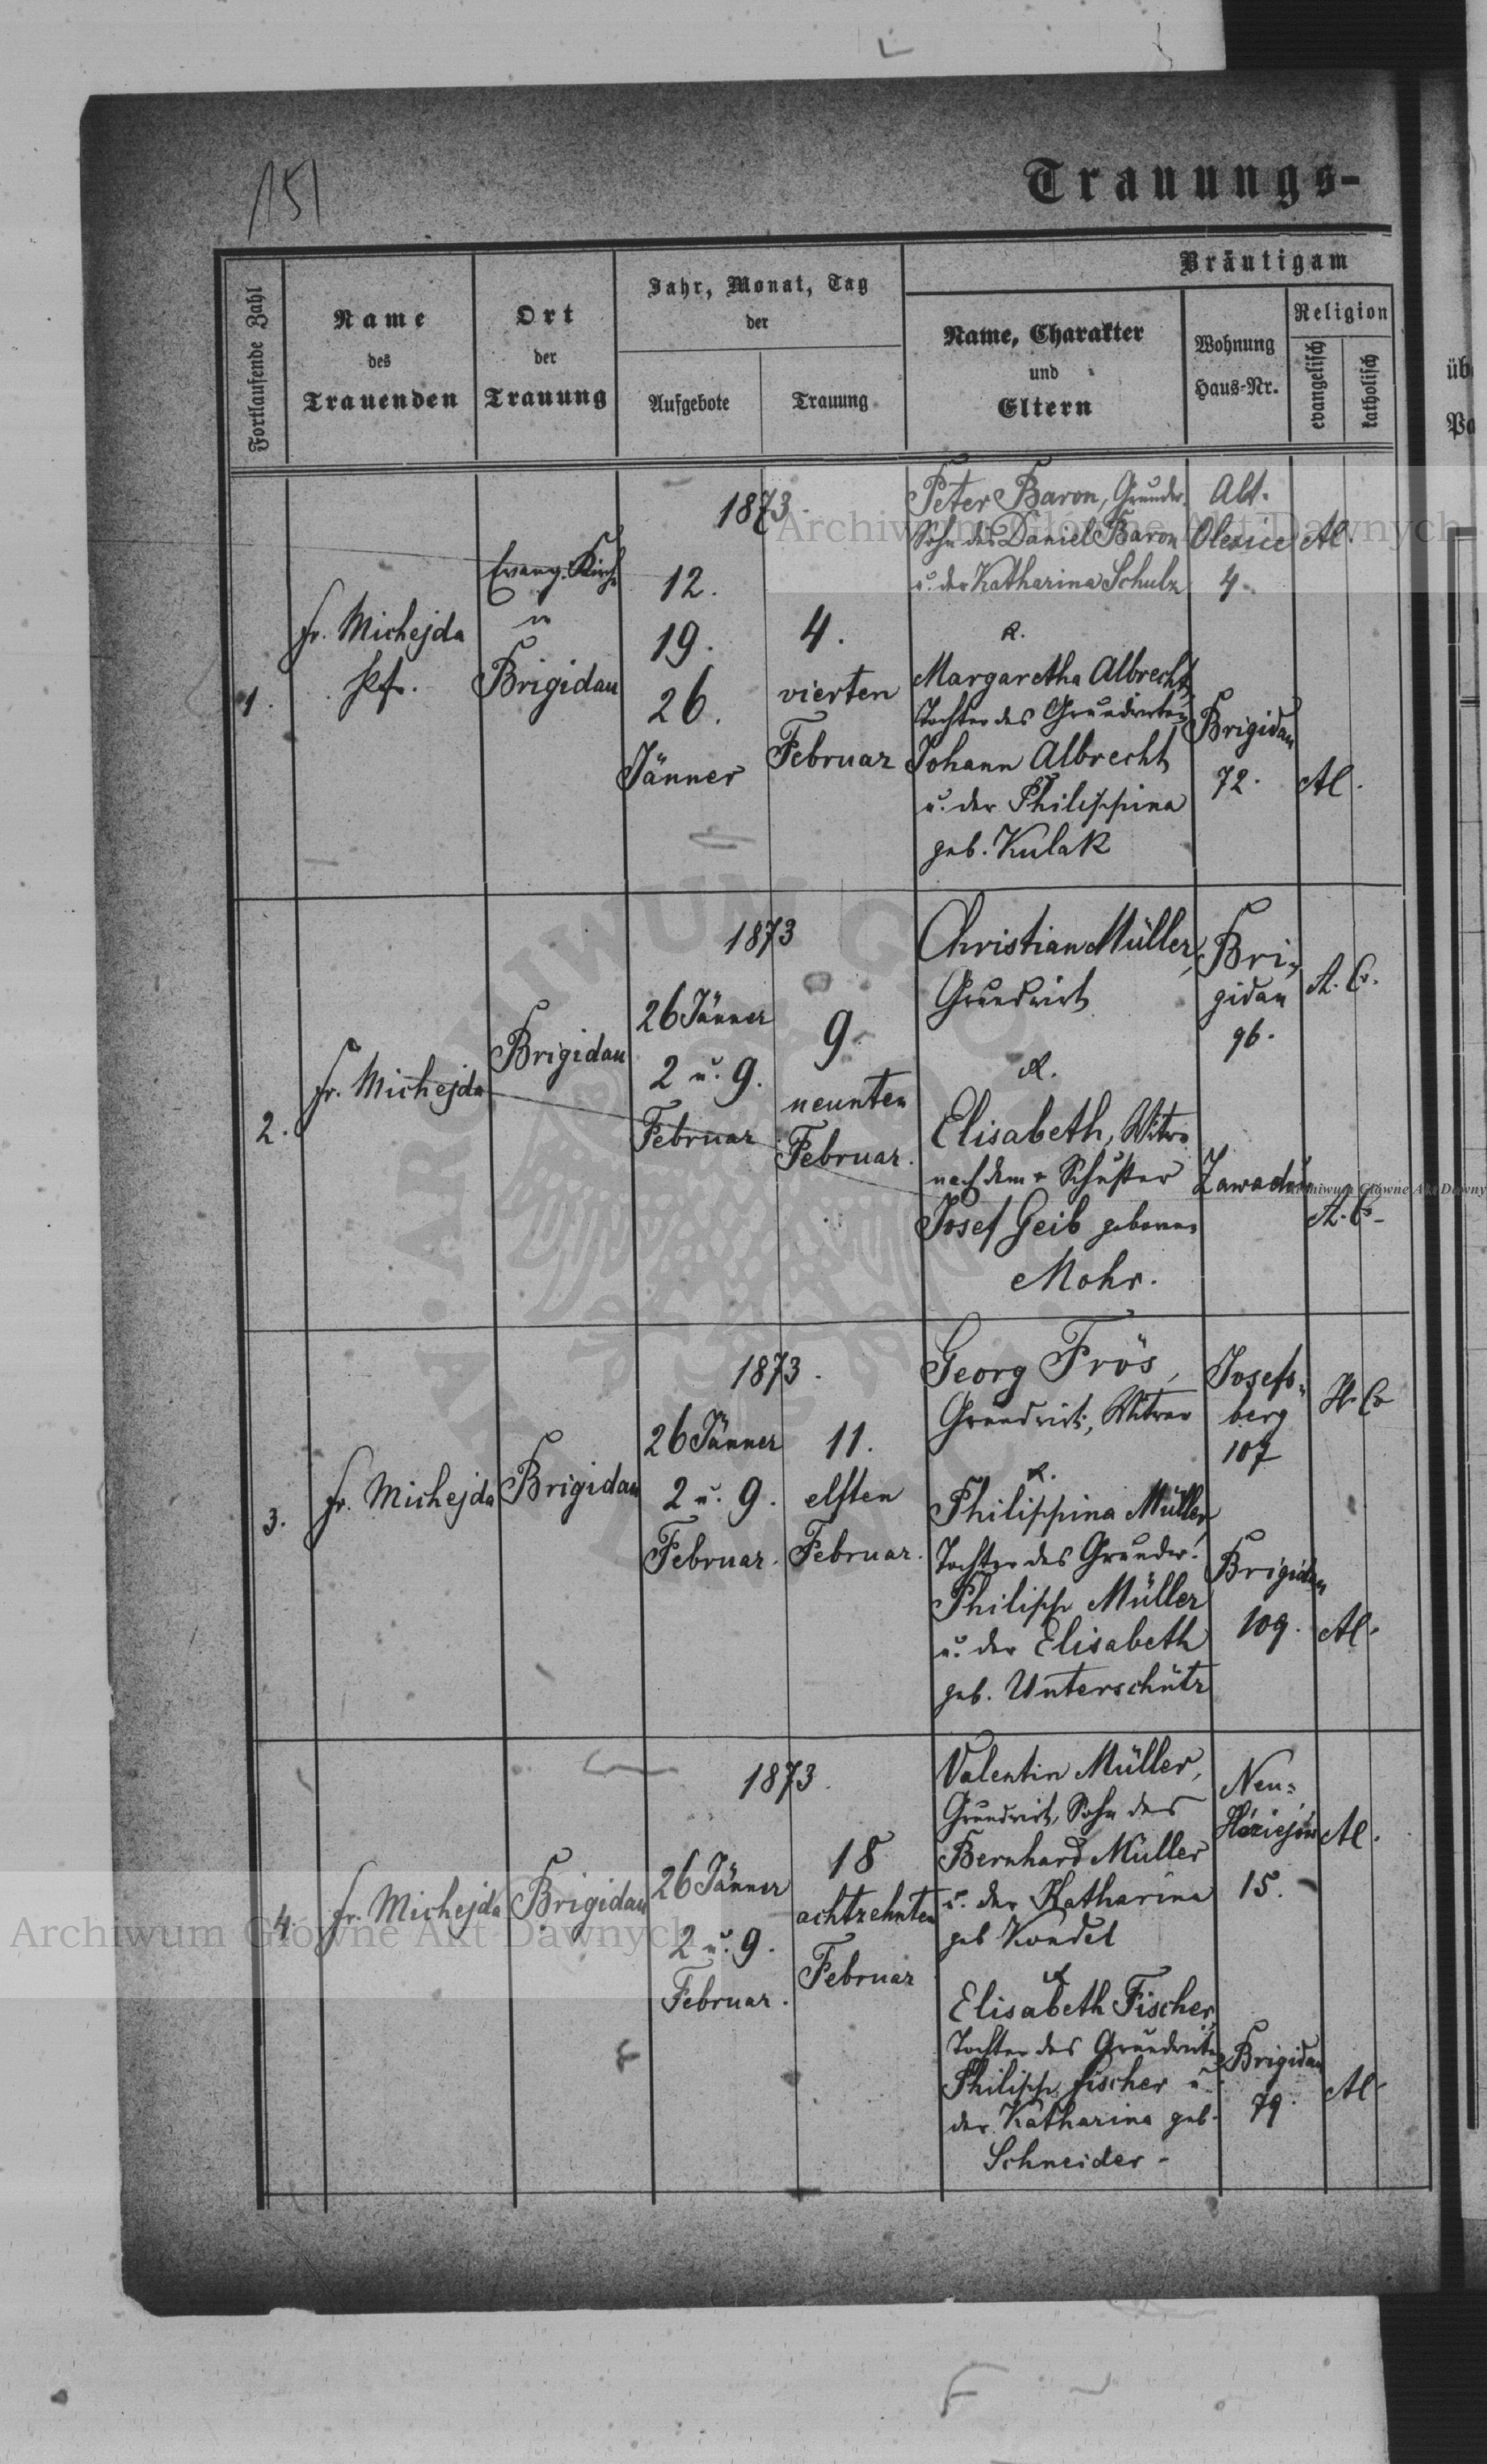 151
Trauungs-
Fortlaufende Zahl
Name
des
Trauenden
Ort
der
Trauung
Jahr, Monat, Tag
der
Aufgebote
Trauung
Bräutigam
Name, Charakter
und
Eltern
Wohnung
Haus-Nr.
Religion
evangelisch
katholisch
1.
fr. Michejda
Pfr.
Evang. Kirche
in
Brigidau
1873.
12.
19.
26.
Jänner
4.
vierten
Februar
Peter Baron, Grundw.
Sohn des Daniel Baron
u. der Katharina Schulz
&.
Margaretha Albrecht,
Tochter des Grundwirten
Johann Albrecht
u. der Philippina
geb. Kulak
Alt-
4.
Brigidau
72.
2.
fr. Michejda
Brigidau
1873
26 Jänner
2 u. 9.
Februar
9.
neunten
Februar.
Christian Müller,
Grundwirt
&.
Elisabeth, Witwe
nach dem + Schuster
Josef Geib geborene
Mohr.
Bri-
gidau
96.
A. C.
A. C.
3.
fr. Michejda
Brigidau
1873.
26 Jänner
2 u. 9.
Februar.
11.
elften
Februar.
Georg Frös,
Grundwirt, Witwer
&.
Philippina Müller
Tochter des Grundw.
Philipp Müller
u. der Elisabeth
geb. Unterschütz
Josefs-
berg
107
H. C.
Brigidau
109.
4.
fr. Michejda
Brigidau
1873.
26 Jänner
2 u. 9.
Februar.
18
achtzehnten
Februar
Valentin Müller,
Grundwirt, Sohn des
Bernhard Müller
u. der Katharina
geb
&
Elisabeth Fischer,
Tochter des Grundwirten
Philipp Fischer u.
der Katharina geb.
Schneider-
Neu-
15.
Brigidau
79.
Archiwum Główne Akt Dawnych
Archiwum Główne Akt Dawnych